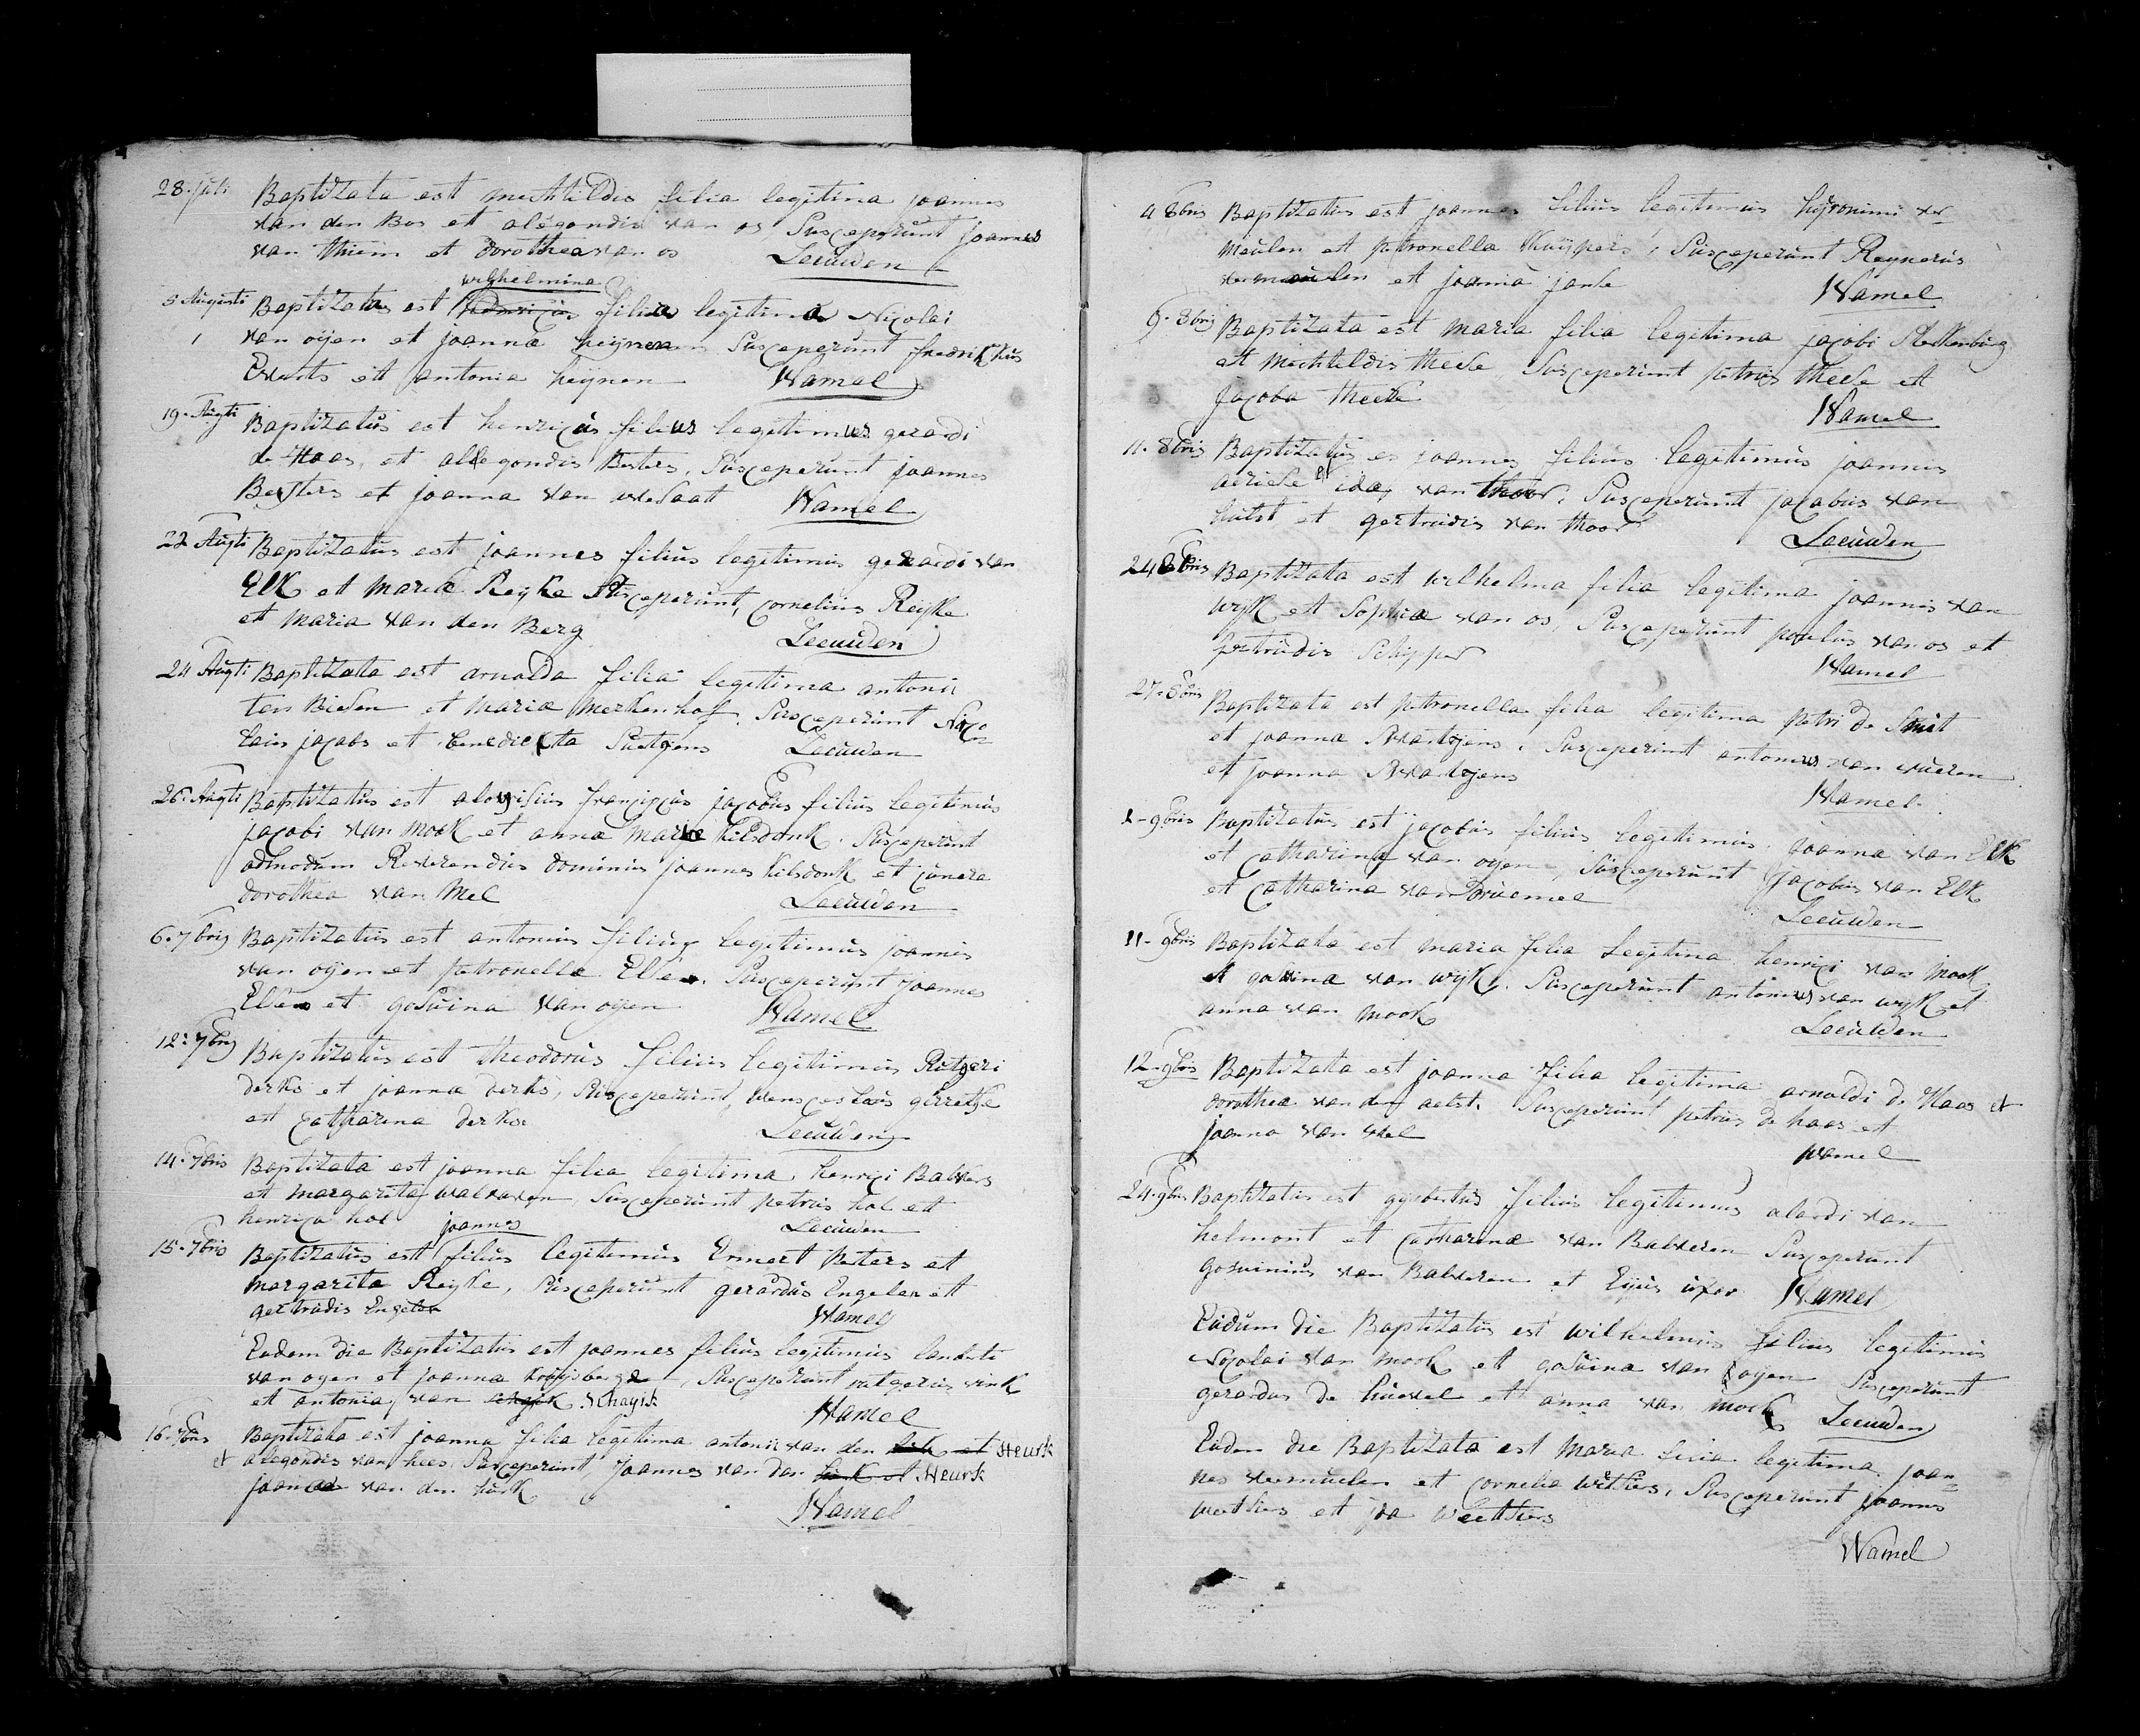 28. juli Baptizata est mechtildis filia legitima joannes
van den Bos et alegondis van os Susceperunt joannes
van thiem et dorothea van os Leeuwen
wilhelmina
5 Augusti Baptizata est henricus filia legitima Nicolai
van oijen et joanna heijnen Susceperunt fredrikkus
Everts et antonia heijnen Wamel
19. Augti Baptizatus est henricus filius legitimus gerardi
de Haas, et allegondis Besters, Susceperunt joannes
Besters et joanna van Wamel
22 Augti Baptizatus est joannes filius legitimus gerardi van
Elk et Maria Reyke Susceperunt, cornelius Reyke
et maria van den Berg Leeuwen
24 Augti Baptizata est arnolda filia legitima antonii
ten Biesen et maria merkenhof. Susceperunt Nico=
laus jacobs et benedicta Leeuwen
26. Augti Baptizatus est aloysisius franciscus jacobus filius legitimus
jacobi van mook et anna maria hilsdonk. Susceperunt
admodum Reverendus dominus joannes hilsdonk et
dorothea van Mel Leeuwen
6. 7bris Baptizatus est antonius filius legitimus joannis
van oijen et petronella Elsen. Susceperunt joannes
Elsen et gosuina van oijen Wamel
12. 7bris Baptizatus est theodorus filius legitimus Rutgeri
derks et joanna derks, Susceperunt, wenceslaus gerritse
est catharina derkse Leeuwen
14. 7bris Baptizata est joanna filia legitima henrici Balvers
et margarita walraven, Susceperunt petrus hol et
henrica hol Leeuwen
joannes
15. 7bris Baptizatus est filius legitimus Emmert Peters et
margarita Reyke, Susceperunt gerardus Engelen ett
gertrudis Engelen Wamel
Eadem die Baptizatus est joannes filius legitimus lamberti
van oyen et joanna, Susceperunt rutgerus vink
et antonia van schayk Schayik Wamel
16. 7bris Baptizata est joanna filia legitima antonii van den Heurk
et alegondis van hees Susceperunt, joannes van den Heurk
joanna van den hurk
Wamel
4 8bris Baptizatus est joannes filius legitimus hyronimi ver=
meulen et petronella Kuijpers, Susceperunt Reynerus
vermeulen et joanna janse Wamel
9. 8bris Baptizata est maria filia legitima jacobi
et mechtildis theese, Susceperunt petrus theese et
jacoba theese Wamel
11. 8bris Baptizatus es joannes filius legitimus joannis
ariese et ida van thoor. Susceperunt jacobus van
hulst et gertrudis van thoor Leeuwen
24 8bris Baptizata est wilhelma filia legitima joannis van
wijk et Sophia van os, Susceperunt paulus van os et
gertrudis Schipper Wamel
27. 8bris Baptizata est petronella filia legitima petri de Smit
et joanna Swartjens. Susceperunt antonius van vueren
et joanna Swartjens Wamel
2 - 9bris Baptizatus est jacobus filius legitimus joanna van Elk
et catharina van oyen, Susceperunt jacobus van Elk
et catharina van Druemel Leeuwen
11 - 9bris Baptizata est maria filia Legitina henrici van mook
et gosuina van wijk. Susceperunt antonius van wijk et
anna van mook Leeuwen
12 - 9bris Baptizata est joanna filia legitima arnoldi de Haas et
dorothea van den aelst. Susceperunt petrus de haas et
joanna van Wamel
24. 9bris Baptizatus est gysbertus filius legitimus alardi van
helmont et catharina van Balveren Susceperunt
gosuinus van Balveren et Ejus uxor Wamel
Eadum die Baptizatus est wilhelmus filius legitimis
Nicolai van mook et gosuina van oyen Susceperunt
gerardus de heuvel et anna van mook Leeuwen
Eadem die Baptizata est Maria filia legitima joan=
nes vermeulen et cornelia wetters, Susceperunt joannes
wetters et ida weetters
Wamel